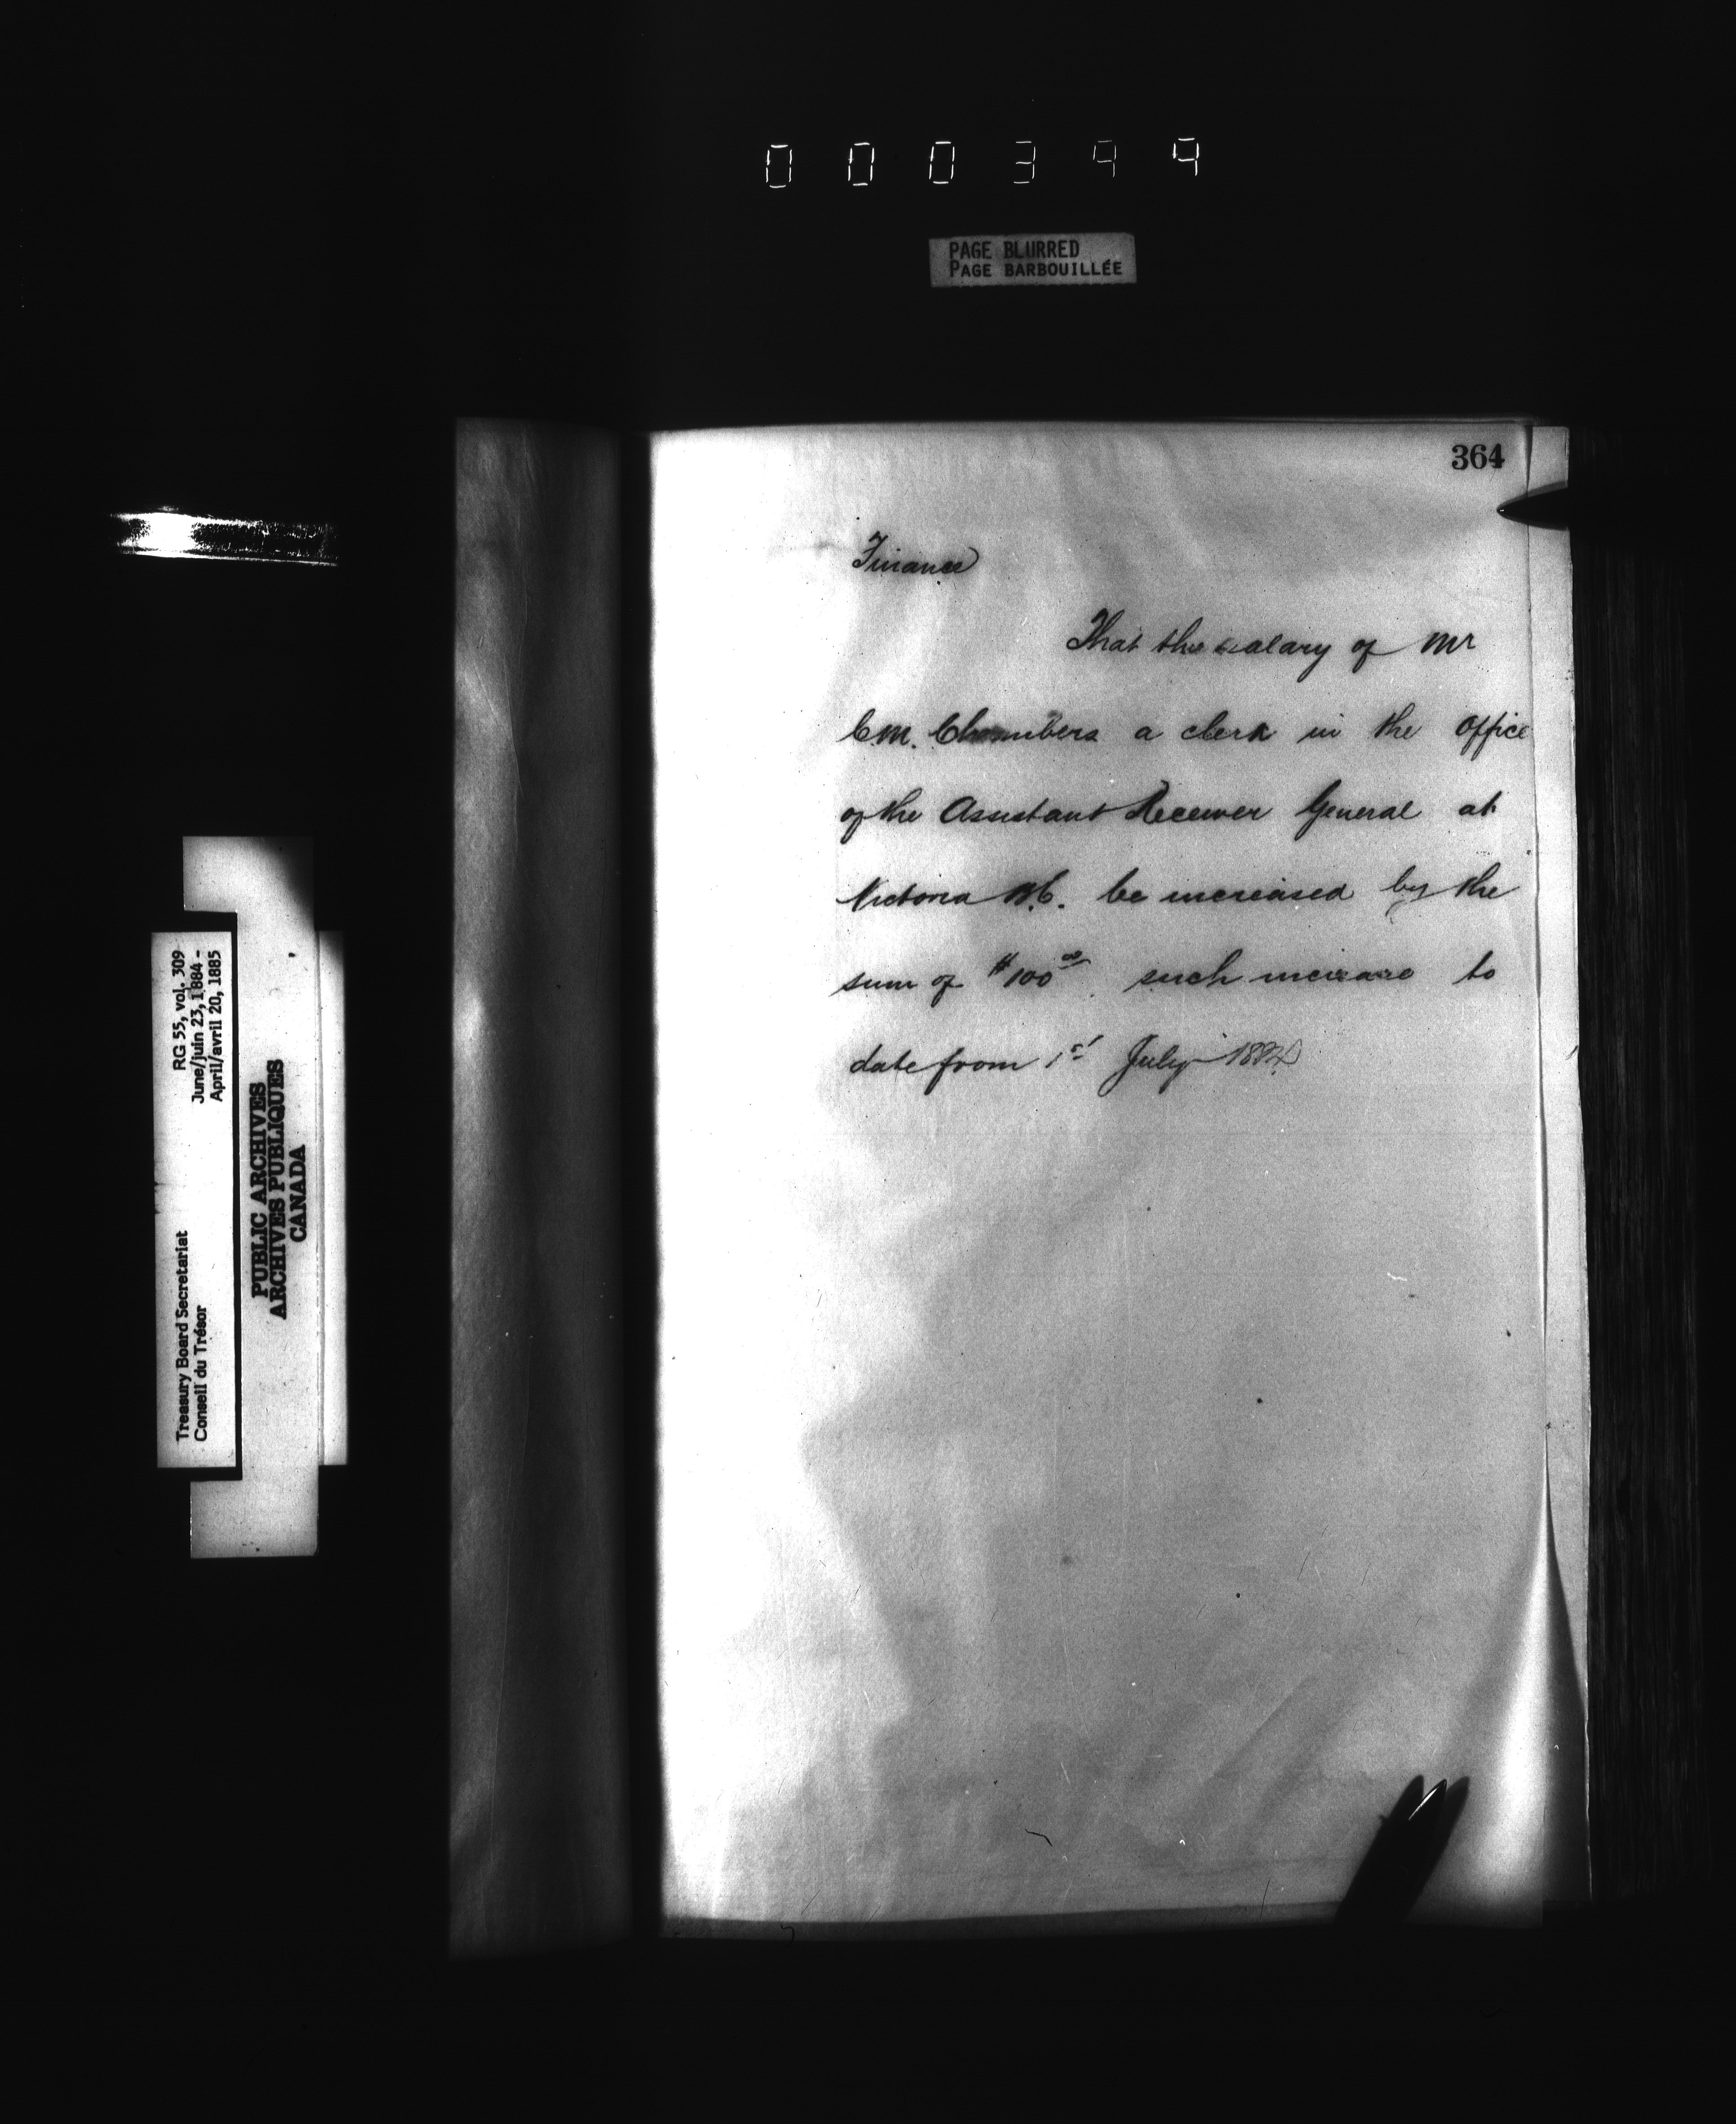 000399
PAGE BLURRED
PAGE BARBOUILLÉE
364
Finance
That the salary of Mr
C M. Chambers a clerk in the Office
of the Assistant Receiver General at
Victoria B.C. be increased by the
sum of $100 00 such increase to
date from 1st July 1884
RG 55, vol. 309
June/juin 23, 1884 -
April/avril 20, 1885
Treasury Board Secretariat
Conseil du Trésor
PUBLIC ARCHIVES
ARCHIVES PUBLIQUES
CANADA